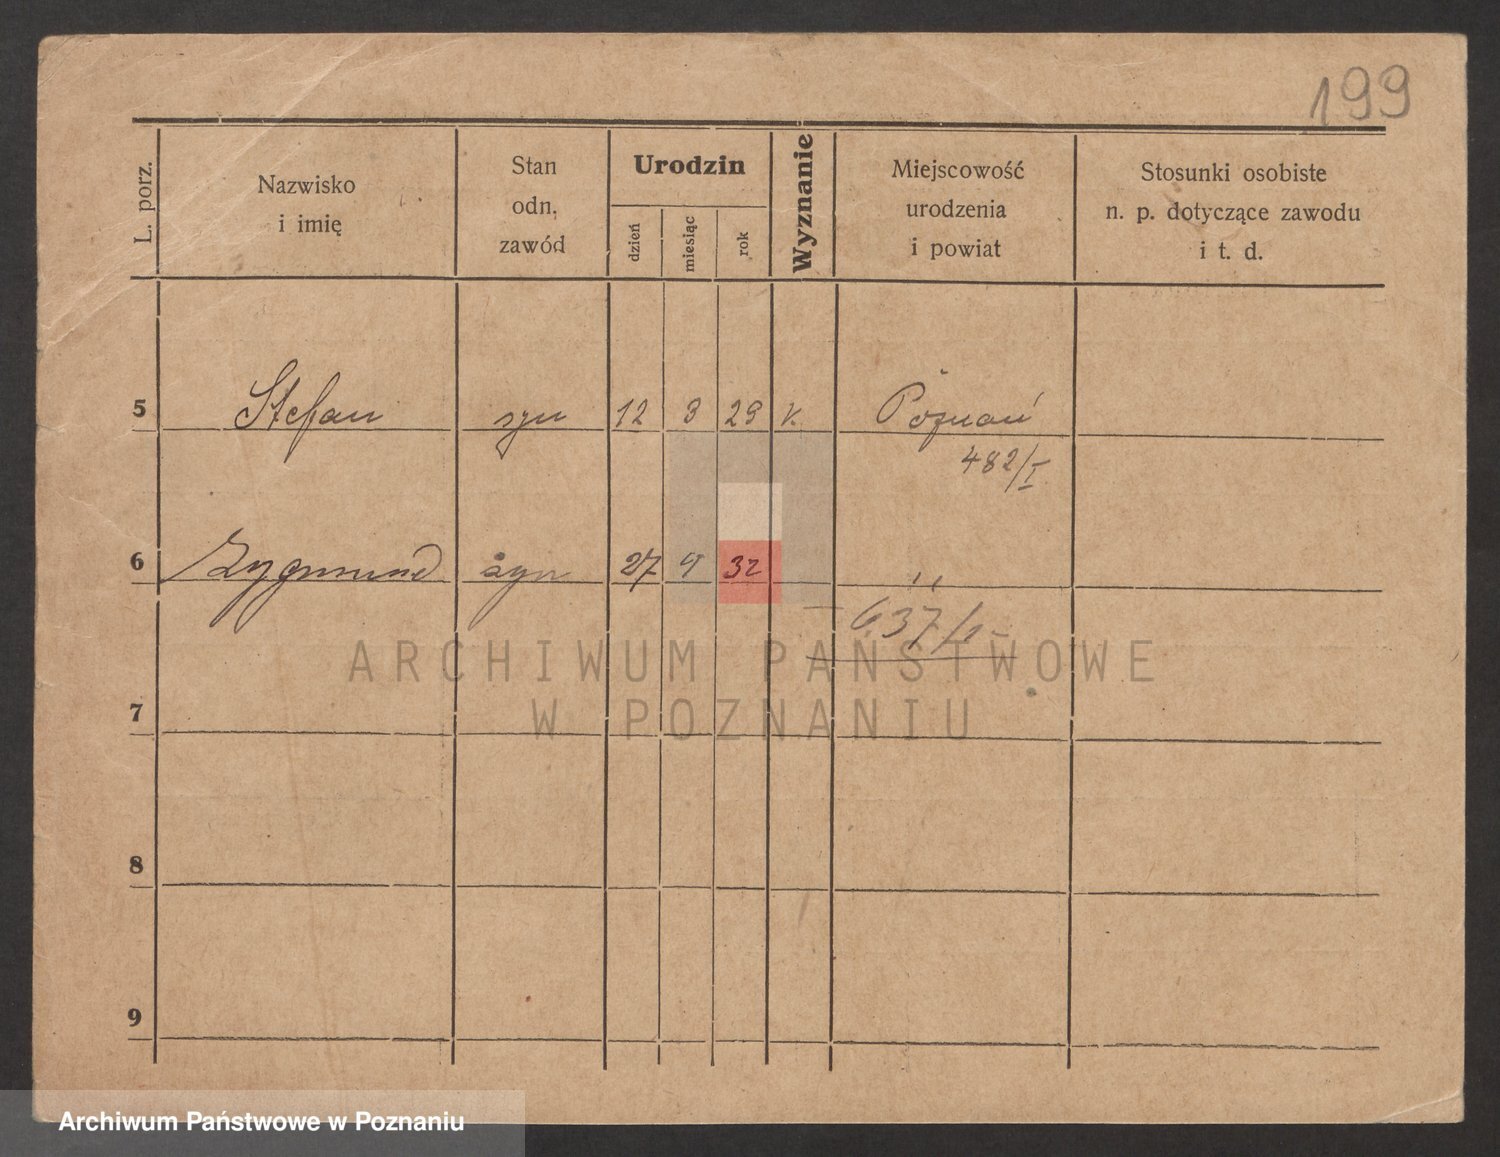 199
L. porz.
Nazwisko
i imię
Stan
odn,
zawód
Urodzin
dzień
miesiąc
rok
Wyznanie
Miejscowość
urodzenia
i powiat
Stosunki osobiste
n. p. dotyczące zawodu
i t. d.
5 Stefan syn 12 3 29 k. Poznań
482/I
6 Zygmund syn 27 4 32 ,,
637/I
ARCHIWUM PAŃSTWOWE
W POZNANIU
7
8
9
Archiwum Państwowe w Poznaniu